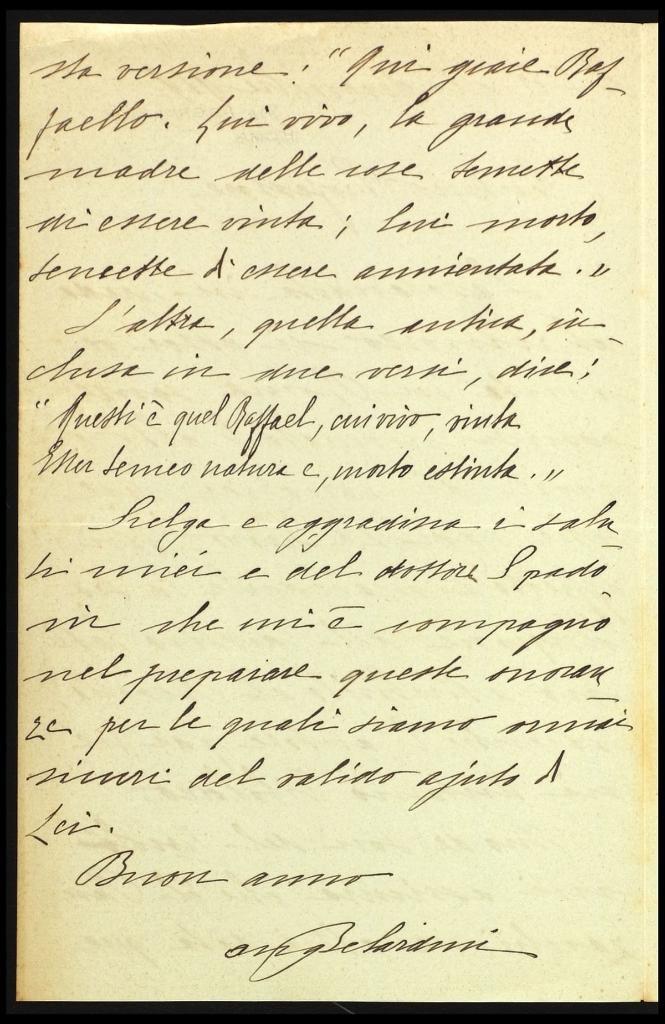 sta versione: "Qui giace Raf-
faello. Lui vivo, la grande
madre delle cose temette
di essere vinta; lui morto,
temette di essere annientata."
L'altra, quella antica, in-
clusa in due versi, dice:
"Questi è quel Raffael, cui vivo, vinta
Esser temeo natura e, morto estinta."
Scelga e aggradisca i salu
ti miei e del dottore Spado
ni che mi è compagno
nel preparare queste onoran
ze per le quali siamo ormai
sicuri del valido ajuto di
Lei.
Buon anno